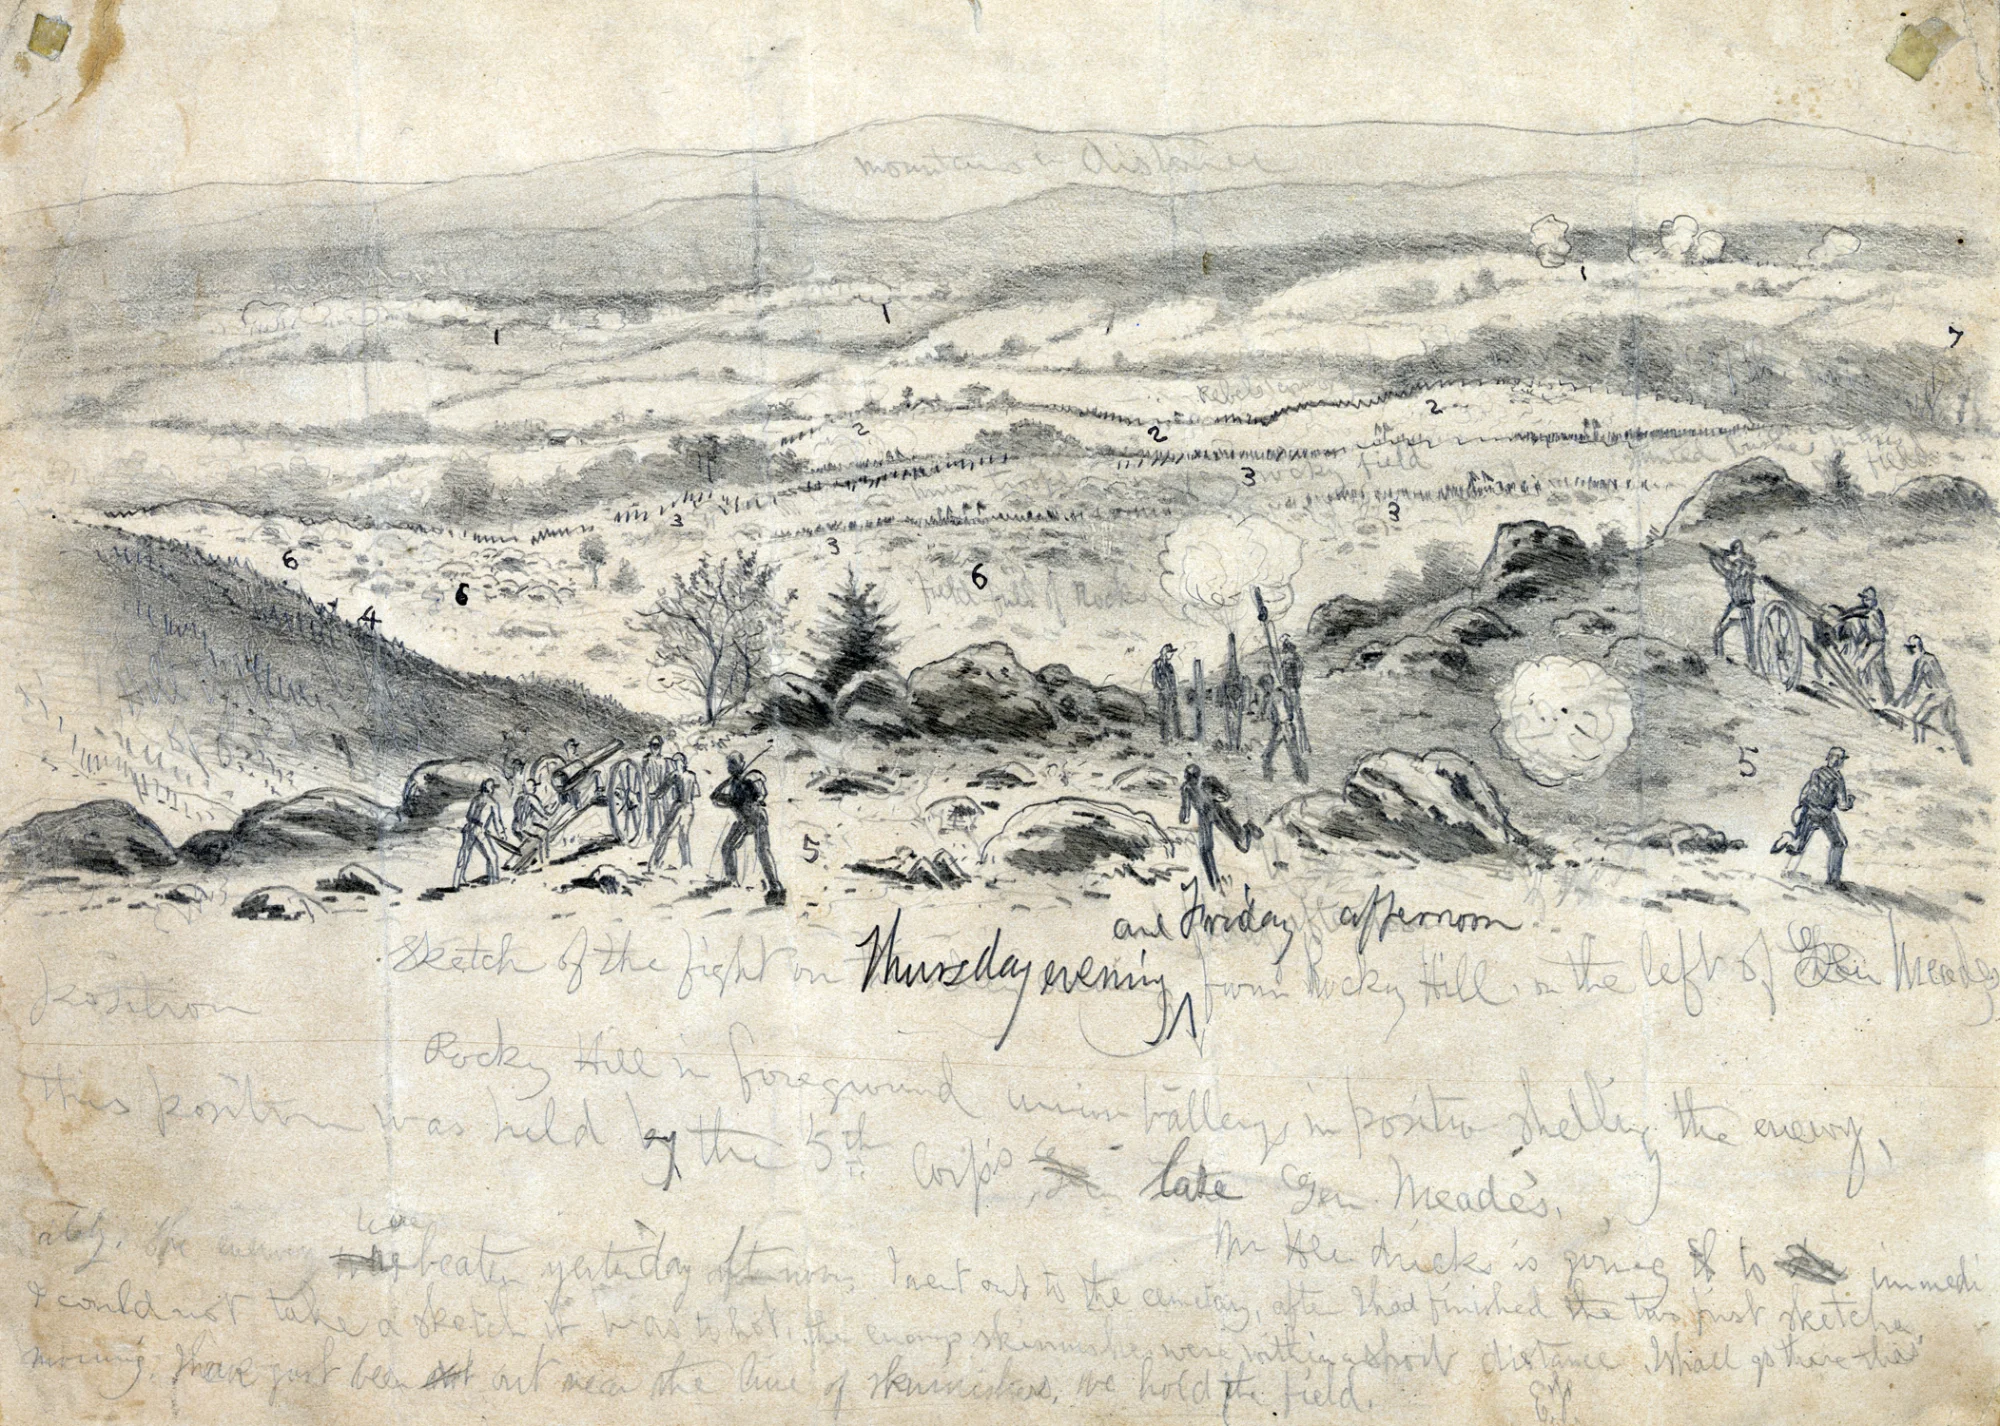 mountains in distance
1
1
1
1
7
Rebels
2
2
2
rocky field
Hunted in the
field
3
3
3
3
6
6
6
field full of Rocks
4
5
5
and Friday afternoon
Sketch of the fight on Thursday evening from Rocky Hill, on the left of Gen Meades
position
Rocky Hill in foreground union battery in positio shelling the enemy,
This position was held by the 5th Corps, late Gen. Meade's.
Mr is going to immedi
ately. the enemy was
were beaten yesterday afternoon I went out to the cemetary, after I had finished the two first sketches
I could not take a sketch it was to hot, the enemy skirmishers were within a short distance I shall go there this
morning. I have just been out near the line of skirmishers, we hold the field.
E.F.